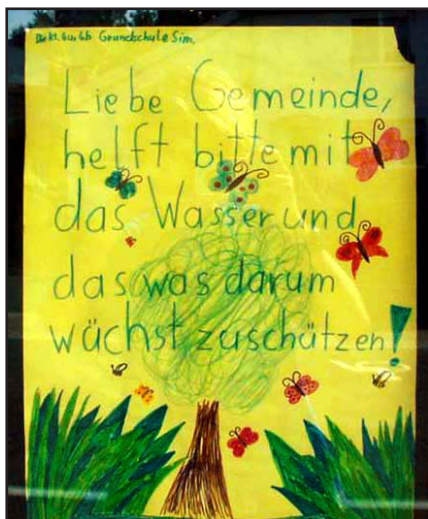 Grundschule Sim.
Liebe Gemeinde,
helft bitte mit
das Wasser und
das was darum
wächst zuschützen!